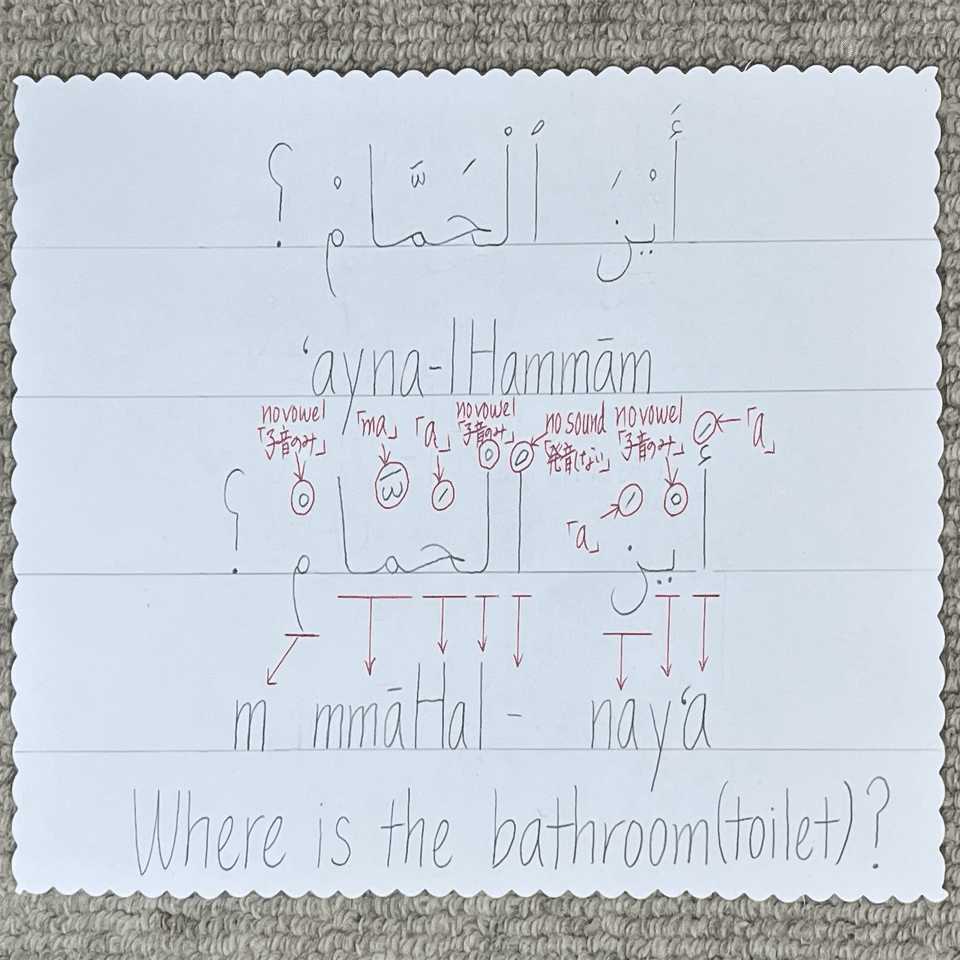 أَيْنَ ٱلْحَمَّامْ ؟
'ayna-lHammām
no vowel 「子音のみ」 「ma」 「a」 no vowel 「子音のみ」 no sound 「発音しない」 no vowel 「子音のみ」 「a」
「a」
أَيْنَ ٱلْحَمَّامْ ؟
m mmāHal - nay'a
Where is the bathroom(toilet)?